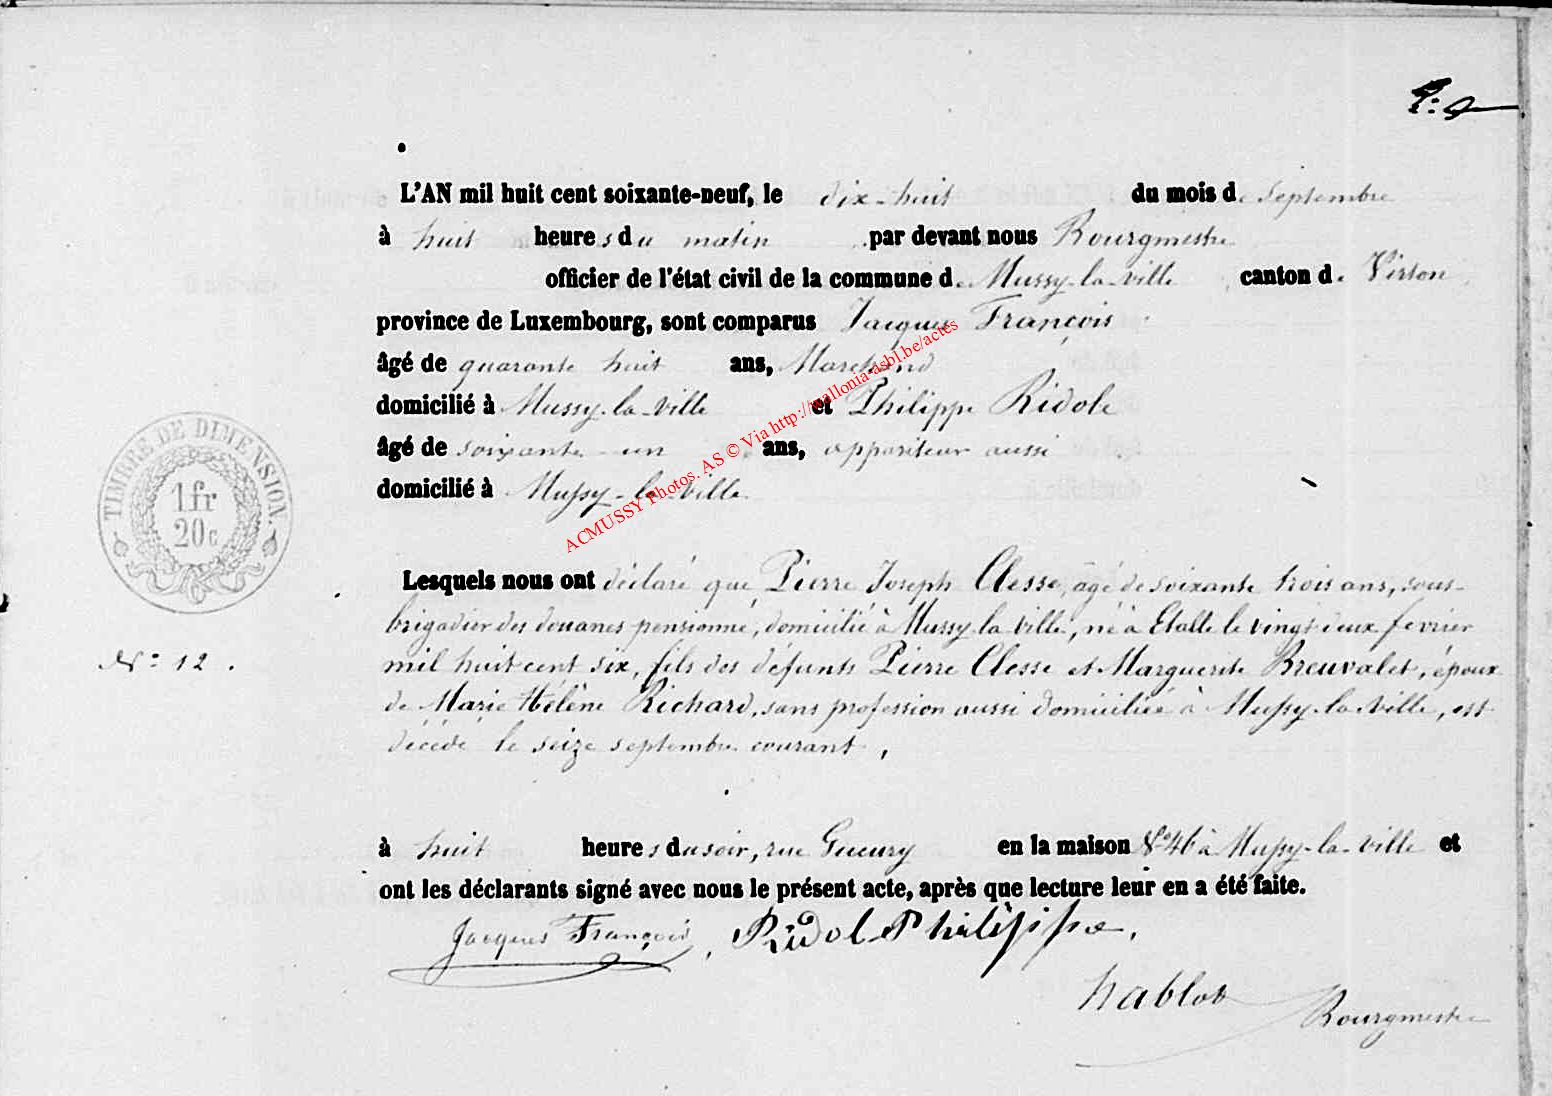 L'AN mil huit cent soixante-neuf, le dix-huit du mois de Septembre
à huit heures du matin par devant nous Bourgmestre
officier de l'état civil de la commune de Mussy-la-ville canton de Virton
province de Luxembourg, sont comparus Jacques François
âgé de quarante huit ans, Marchand
domicilié à Mussy-la-ville et Philippe Ridole
âgé de soixante-un ans, appariteur aussi
domicilié à Mussy-la-ville
TIMBRE DE DIMENSION.
1 fr
20 c
ACMUSSY Photos. AS © Via http://wallonia-asbl.be/actes
Lesquels nous ont déclaré que Pierre Joseph Clesse, âgé de soixante trois ans, sous-
brigadier des douanes pensionné, domicilié à Mussy la Ville, né à Etalle le vingt deux fevrier
N° 12.
mil huit cent six, fils des défunts Pierre Clesse et Marguerite Breuvalet, époux
de Marie Hélène Richard, sans profession aussi domiciliée à Mussy-la-Ville, est
décédé le seize septembre courant,
à huit heures du soir, rue en la maison N° 46 à Mussy-la-Ville et
ont les déclarants signé avec nous le présent acte, après que lecture leur en a été faite.
Jacques François, Ridole Philippe,
hablot
Bourgmestre